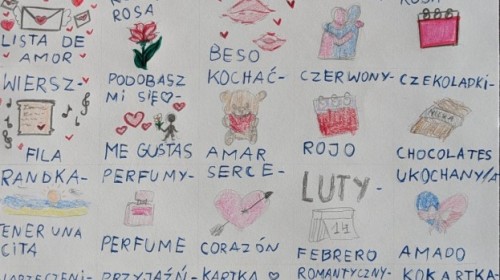 ROSA
LISTA DE
AMOR
BESO
WIERSZ-
PODOBASZ
MI SIĘ♡-
KOCHAĆ-
CZERWONY-
CZEKOLADKI-
FILA
ME GUSTAS
AMAR
ROJO
CHOCOLATES
RANDKA-
PERFUMY-
SERCE-
LUTY-
UKOCHANY/A
14
TENER UNA
CITA
PERFUME
CORAZÓN
FEBRERO
AMADO
PRZYJAŹŃ-
KARTKA ♡
ROMANTYCZNY-
KOKARTKA